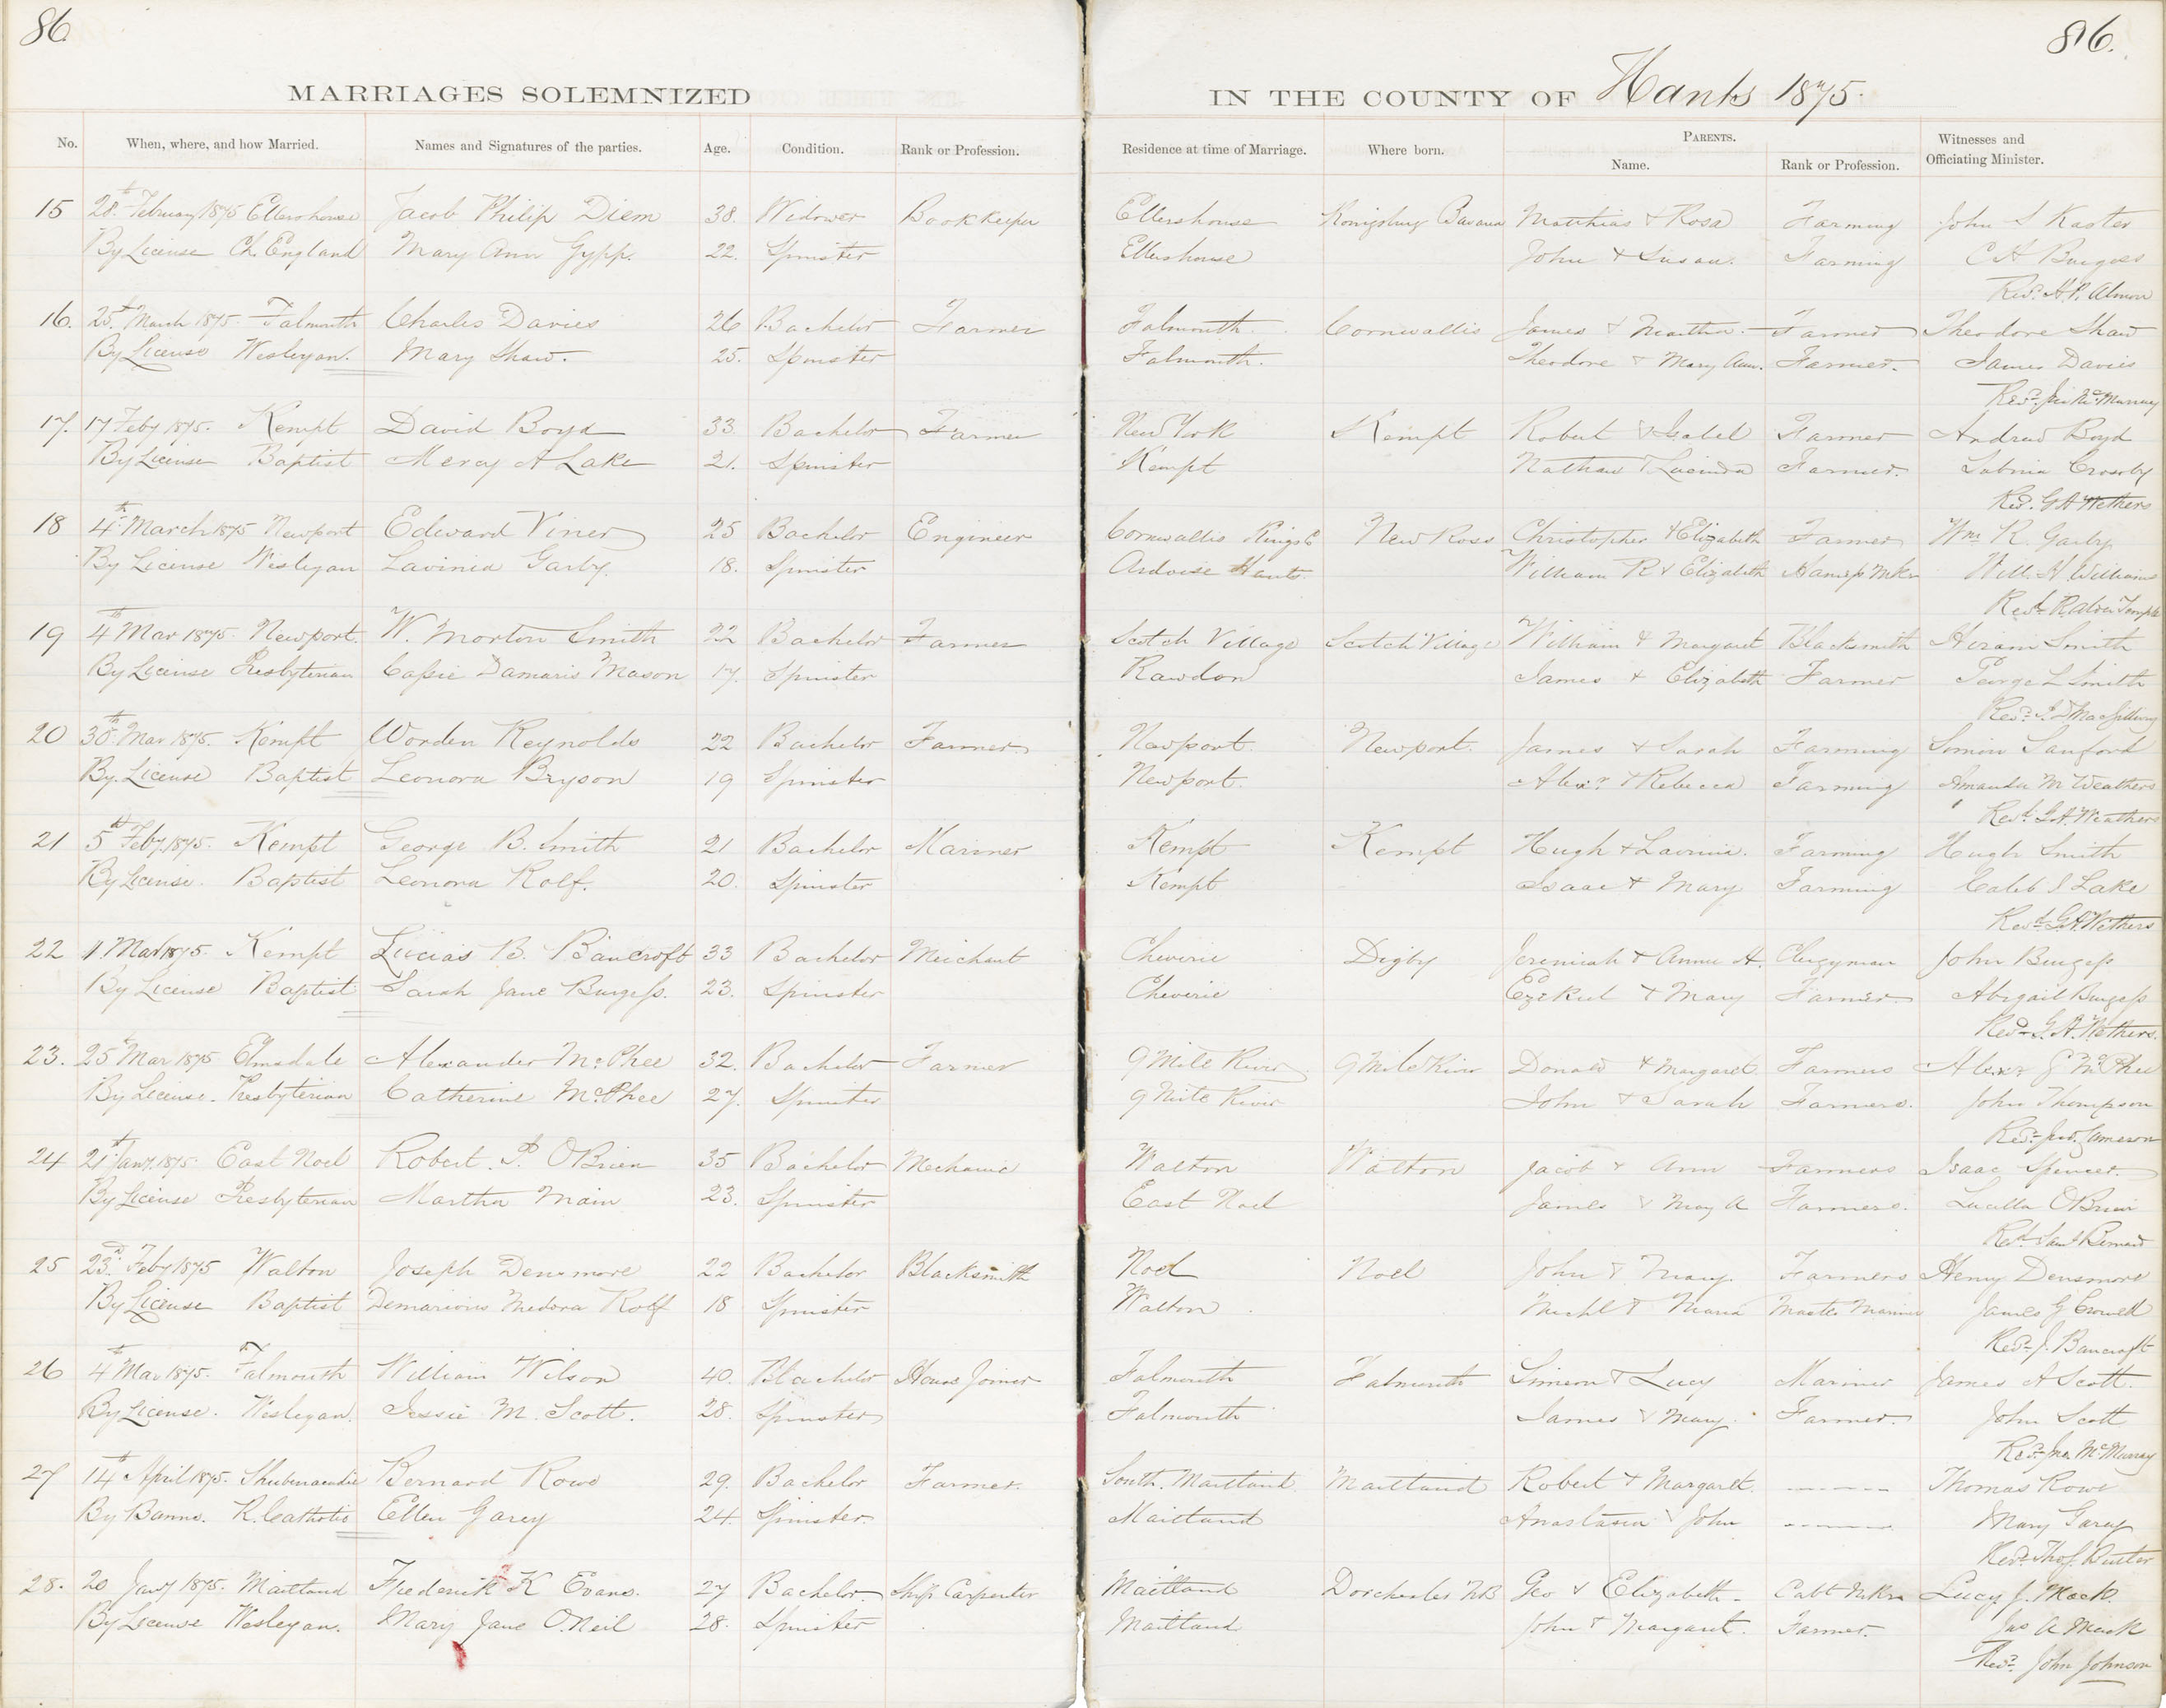 86
86.
MARRIAGES SOLEMNIZED IN THE COUNTY OF Hants 1875.
No. When, where, and how Married. Names and Signatures of the parties. Age. Condition. Rank or Profession. Residence at time of Marriage. Where born. PARENTS. Name. Rank or Profession. Witnesses and Officiating Minister.
15 28th February 1875 Ellershouse Jacob Philip Diem 38. Widower Bookkeeper Ellershouse Konigsburg Bavaria Matthias & Rosa Farming John S Kaster
By License Ch. England Mary Ann Gypp. 22. Spinster Ellershouse John & Susan. Farming C A Burgess
Revd. H. P. Almon
16. 25th March 1875. Falmouth Charles Davies 26 Bachelor Farmer Falmouth. Cornwallis James & Martha. Farmer Theodore Shaw
By License Wesleyan. Mary Shaw. 25. Spinster Falmouth. Theodore & Mary Ann. Farmer. James Davies
Revd. Jno McMurray
17. 17 Feby 1875. Kempt David Boyd 33 Bachelor Farmer New York Kempt Robert & Isabel Farmer Andrew Boyd
By License Baptist Mercy A Lake 21. Spinster Kempt Nathan & Lucinda Farmer. Sabria Crosby
Revd. G A Wethers
18 4th March 1875 Newport Edward Viner 25 Bachelor Engineer Cornwallis Kings Co New Ross Christopher & Elizabeth Farmer Wm R. Garby
By License Wesleyan Lavinia Garby. 18. Spinster Ardoise Hants. William R & Elizabeth Harness Mkr Will. H Williams
Revd. Ralph Temple
19 4th Mar 1875. Newport. W. Morton Smith 22 Bachelor Farmer Scotch Village Scotch Village William & Margaret Blacksmith Hiram Smith
By License Presbyterian Cassie Damaris Mason 17. Spinster Rawdon James & Elizabeth Farmer George L Smith
Revd.
20 30th Mar 1875. Kempt Worden Reynolds 22 Bachelor Farmer Newport. Newport. James & Sarah Farming Simon Sanford
By License Baptist Leonora Bryson 19 Spinster Newport. Alexr. & Rebecca Farming Amanda M Weathers
Revd. G. A. Weathers
21 5th Feby 1875. Kempt George B. Smith 21 Bachelor Mariner Kempt Kempt Hugh & Lavinia. Farming Hugh Smith
By License. Baptist Leonora Rolf. 20. Spinster Kempt Isaac & Mary Farming Caleb S Lake
Revd. G A Wethers
22 11 Mar 1875. Kempt Lucias B. Bancroft 33 Bachelor Merchant Cheverie Digby Jeremiah & Anna A. Clergyman John Burgess
By License Baptist Sarah Jane Burgess. 23. Spinster Cheverie Ezekiel & Mary Farmer. Abigail Burgess
Revd. G. A. Wethers.
23. 25th Mar 1875 Elmsdale Alexander McPhee 32. Bachelor Farmer 9 Mile River 9 Mile River Donald & Margaret Farmers Alexr G McPhee
By License. Presbyterian Catherine McPhee 27. Spinster 9 Mile River John & Sarah Farmers. John Thompson
Revd. Jno. Jameson
24 21st Jany 1875. East Noel Robert P. OBrien 35 Bachelor Mechanic Walton Walton Jacob & Ann Farmers Isaac Spencer.
By License Presbyterian Martha Main 23. Spinster East Noel James & Mary A Farmers. Lucilla OBrien
Revd. Saml Bernard
25 23rd. Feby 1875 Walton Joseph Densmore 22 Bachelor Blacksmith Noel Noel John & Mary. Farmers Henry Densmore
By License Baptist Demarious Medora Rolf 18 Spinster Walton Michl & Maria Master Mariner James G Crowell
Revd. J. Bancroft
26 4th Mar 1875. Falmouth William Wilson 40. Bachelor House Joiner Falmouth Falmouth Simeon & Lucy Mariner James A Scott.
By License. Wesleyan. Jessie M. Scott. 28. Spinster Falmouth James & Mary. Farmer. John Scott
Revd. Jno McMurray
27 14th April 1875. Shubenacadie Bernard Rowe 29. Bachelor Farmer. South Maitland. Maitland Robert & Margaret. ------ Thomas Rowe
By Banns. R. Catholic Ellen Garey 24. Spinster. Maitland Anastasia & John ------ Mary Garey
Revd. Thos. Butler
28. 20 Jany 1875. Maitland Frederick K Evans. 27 Bachelor. Ship Carpenter Maitland Dorchester NB Geo & Elizabeth. Cabt Mkr Lucy J. Mack.
By License Wesleyan. Mary Jane O.Neil 28. Spinster Maitland John & Margaret. Farmer. Jas A Mack
Revd. John Johnson